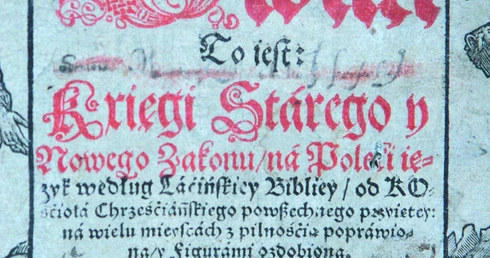 To iest:
Kſięgi Stárego y
Nowego Zakonu/ná Polſki ię-
zyk według Łáćińſkiey Bibliey/od KO-
śćiołá Chrześćiáńſkiego powßechnego przyiętey:
ná wielu mieyſcách z pilnośćią popráwio-
na/y Figurámi ozdobiona.